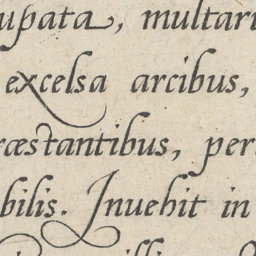 upata, multari
excelsa arcibus,
ræstantibus, per
bilis. Inuehit in